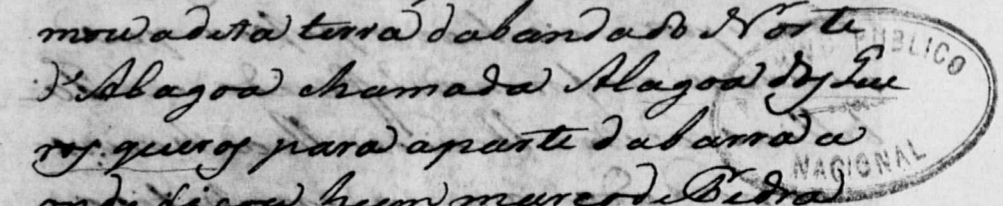 mou adita terra dabanda do Norte
d'Alagoa chamada Alagoa dos Que
ros queros para aparte dabarra a
onde ficou hum marco de Pedra
PUBLICO
NACIONAL